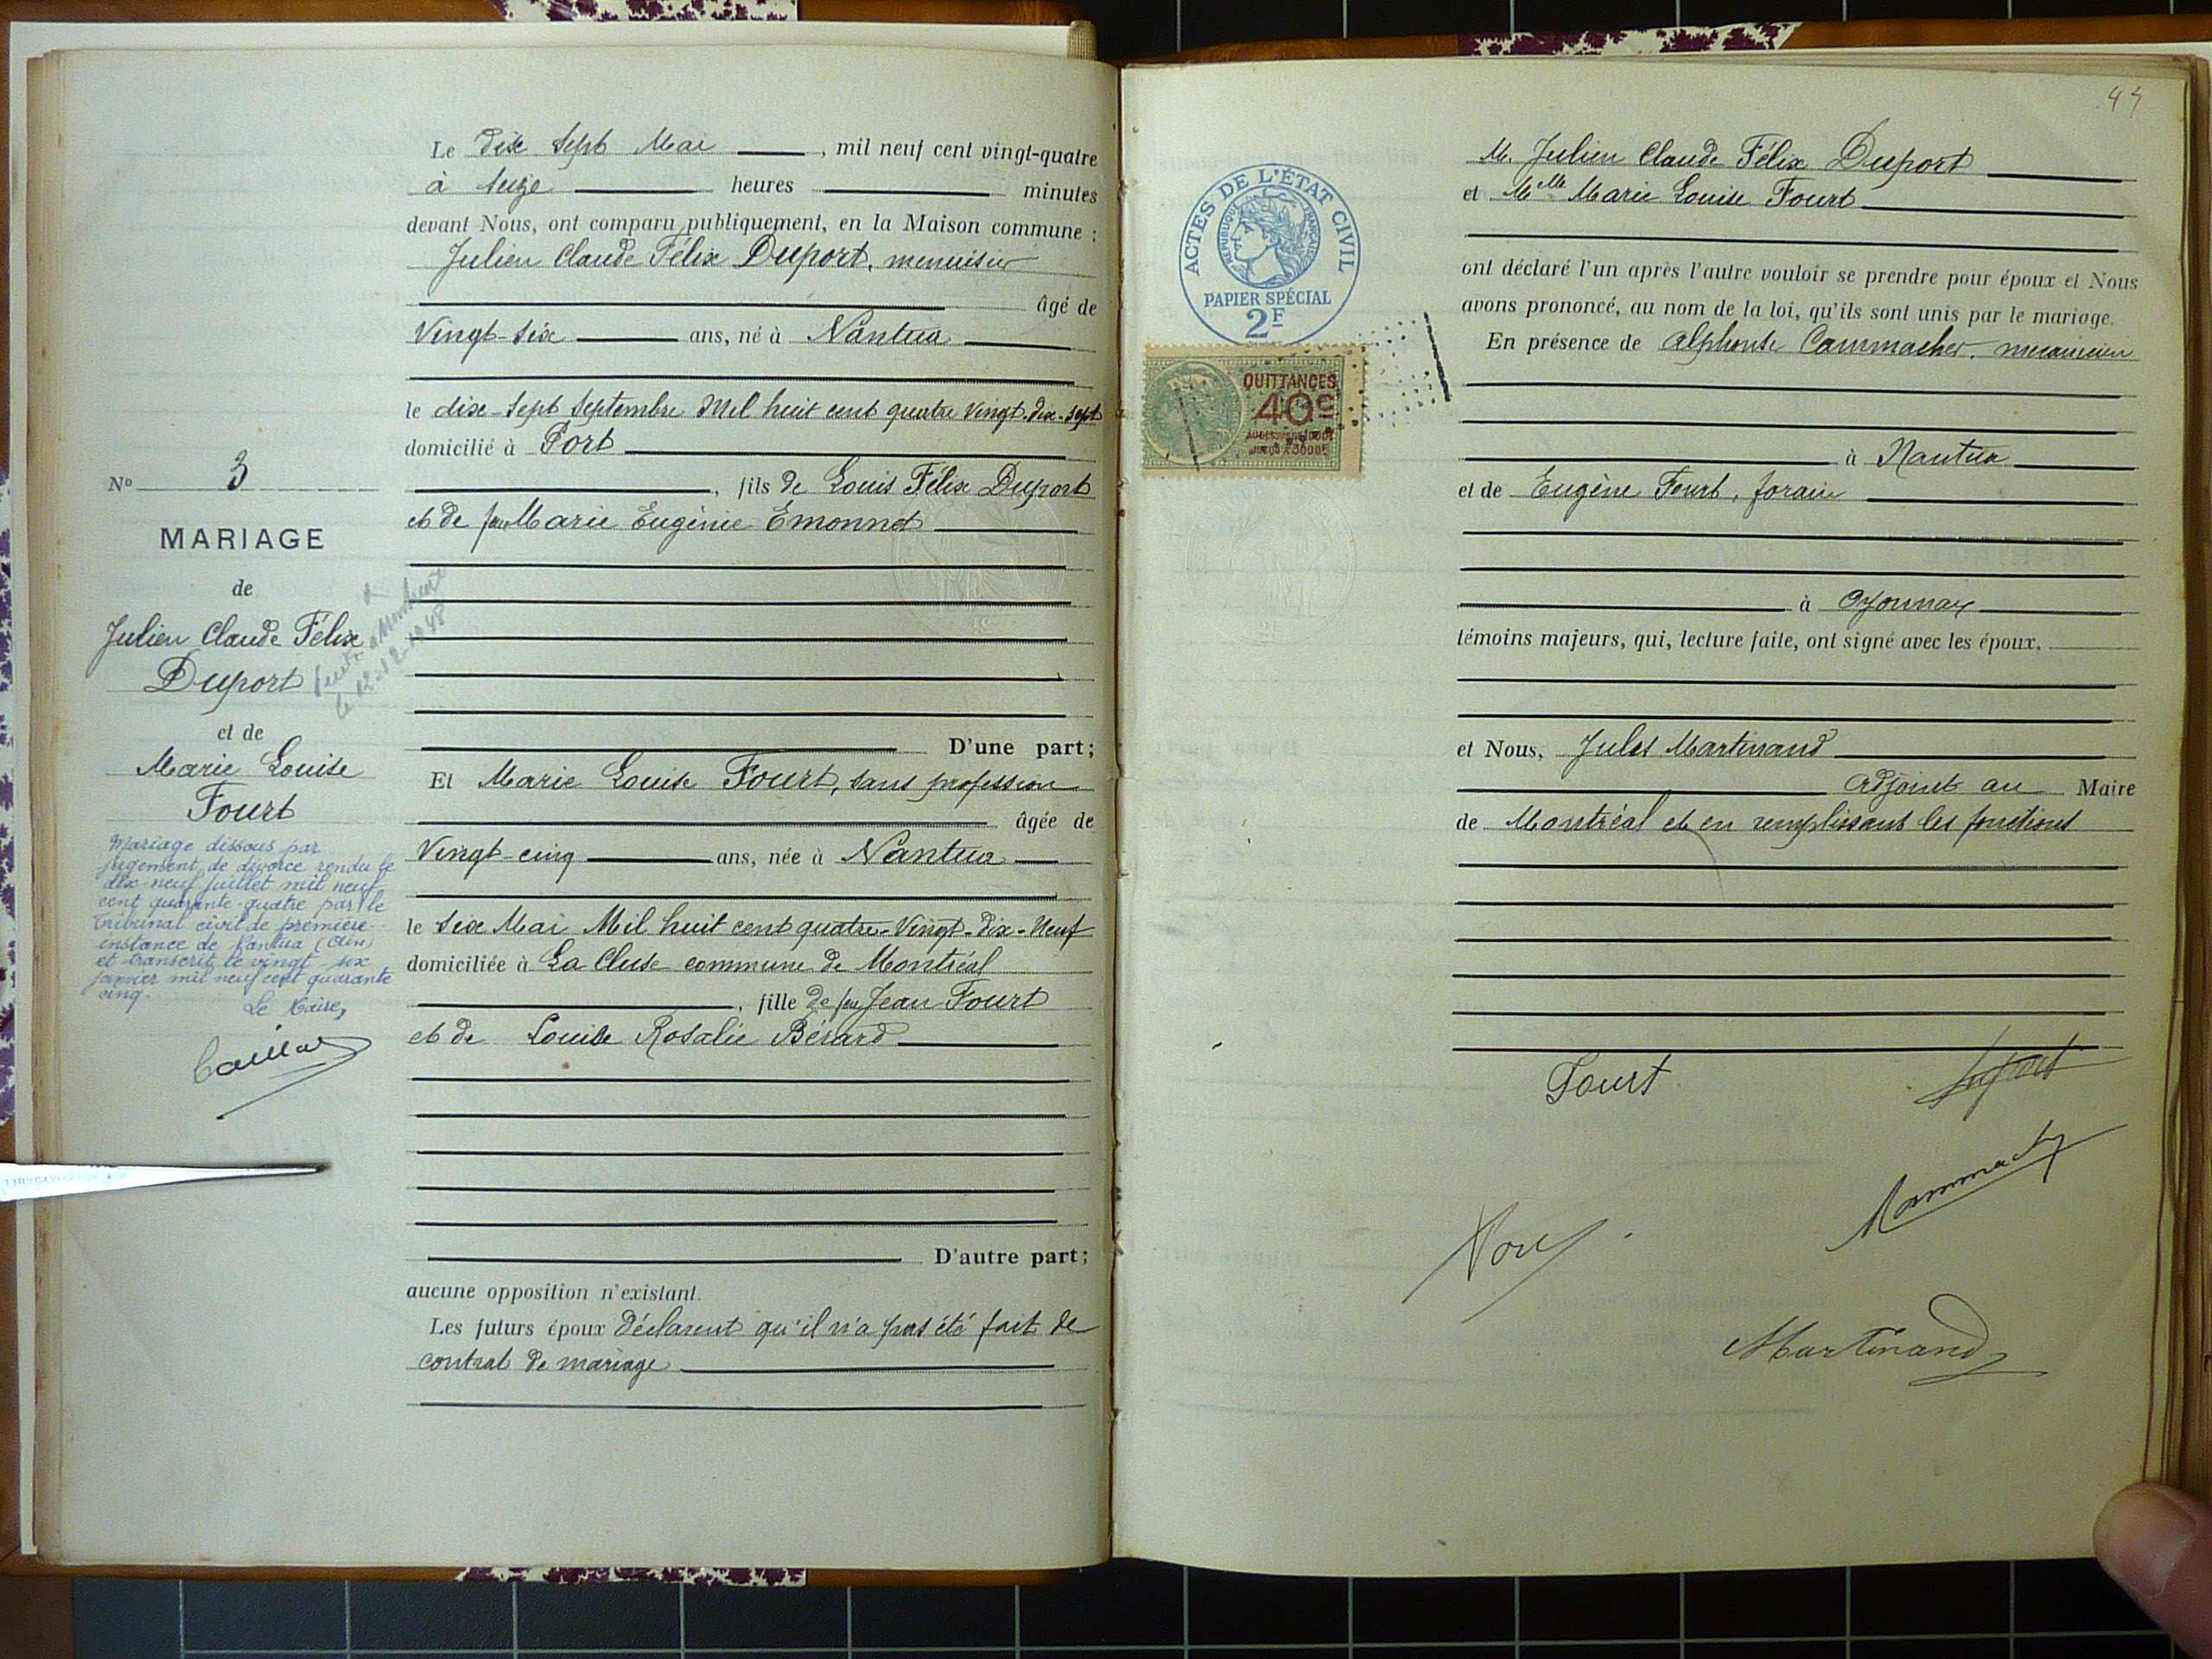 N° 3
MARIAGE
de
Julien Claude Félix
Duport
et de
Marie Louise
Fourt
Mariage dissous par
jugement de divorce rendu le
dix-neuf juillet mil neuf
cent quarante-quatre par le
Tribunal civil de première
instance de Nantua (Ain)
et transcrit le vingt-six
janvier mil neuf cent quarante
cinq.
Le Maire,
le 12-12-1948
Le dix sept Mai , mil neuf cent vingt-quatre
à seize heures minutes
devant Nous, ont comparu publiquement, en la Maison commune :
Julien Claude Félix Duport, menuisier
âgé de
Vingt-six ans, né à Nantua
le dix-sept Septembre Mil huit cent quatre Vingt-dix-sept
domicilié à Port
, fils de Louis Félix Duport
et de feu Marie Eugènie Emonnet
D'une part ;
Et Marie Louise Fourt, sans profession
âgée de
Vingt-cinq ans, née à Nantua
le six Mai Mil huit cent quatre-Vingt-Dix-Neuf
domiciliée à La Cluse commune de Montréal
, fille de feu Jean Fourt
et de Louise Rosalie Bérard
D'autre part ;
aucune opposition n'existant.
Les futurs époux déclarent qu'il n'a pas été fait de
contrat de mariage
44
ACTES DE L'ÉTAT CIVIL
RÉPUBLIQUE FRANÇAISE
PAPIER SPÉCIAL
2F
QUITTANCES
40c
M. Julien Claude Félix Duport
et Melle Marie Louise Fourt
ont déclaré l'un après l'autre vouloir se prendre pour époux et Nous
avons prononcé, au nom de la loi, qu'ils sont unis par le mariage.
En présence de Alphonse Cammacher, mécanicien
à Nantua
et de Eugène Fourt, forain
à Oyonnax
témoins majeurs, qui, lecture faite, ont signé avec les époux.
et Nous, Jules Martinand
adjoint au Maire
de Montréal et en remplissant les fonctions
Fourt
Duport
Martinand